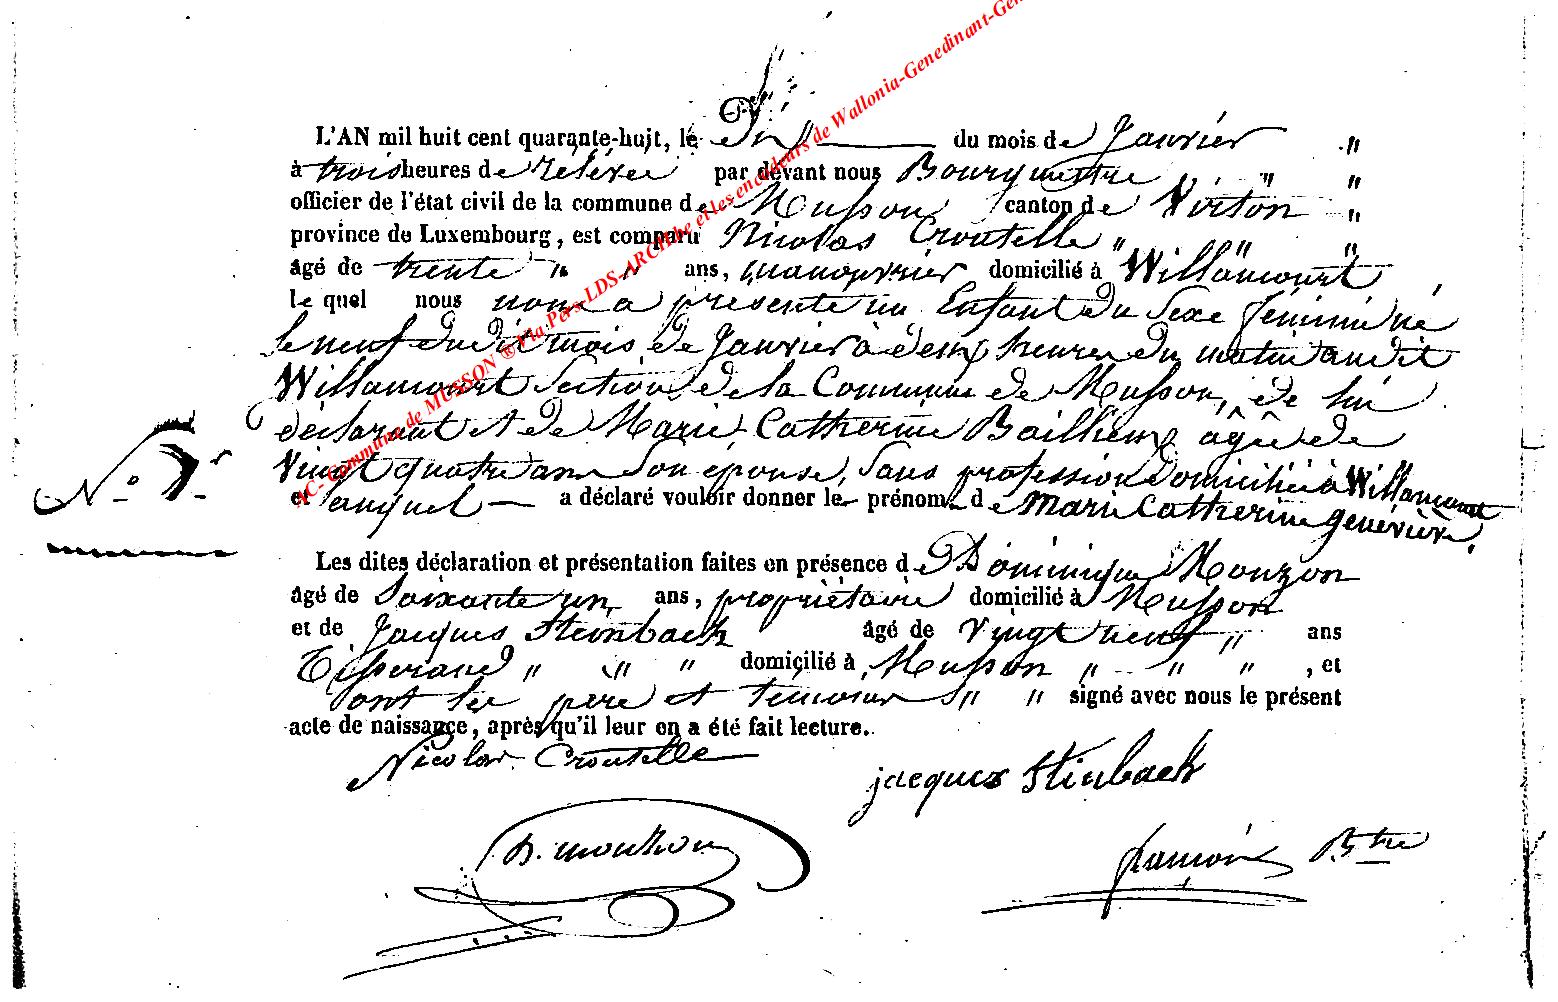 L'AN mil huit cent quarante-huit, le Dix du mois de Janvier "
à trois heures de rélévée par devant nous Bourgmestre " "
officier de l'état civil de la commune de Musson canton de Virton "
province de Luxembourg, est comparu Nicolas Croutelle " " "
âgé de trente " " ans, manouvrier domicilié à Willancourt,
le quel nous nous a présenté un Enfant du Sexe féminin né
le neuf du dit mois de Janvier à deux heures du matin audit
Willancourt Section de la Commune de Musson, de lui
déclarant et de Marie Catherine Baillieux âgée de
Vingt quatre ans Son épouse, Sans profession domiciliée à Willancourt
N° 7
et auquel a déclaré vouloir donner le prénom de Marie Catherine Geneviève.
Les dites déclaration et présentation faites en présence de Dominique Mouzon
âgé de Soixante un ans, propriétaire domicilié à Musson
et de Jacques Steinback âgé de Vingt neuf " ans
Tisserand " " " domicilié à Musson " " " ", et
ont les père et témoins " " signé avec nous le présent
acte de naissance, après qu'il leur en a été fait lecture.
Nicolas Croutelle
jacques Steinback
D. mouzon
Btre
AC- Commune de MUSSON ® Via Pers-LDS-ARCH.be et les encodeurs de Wallonia-Genedinant-Gen